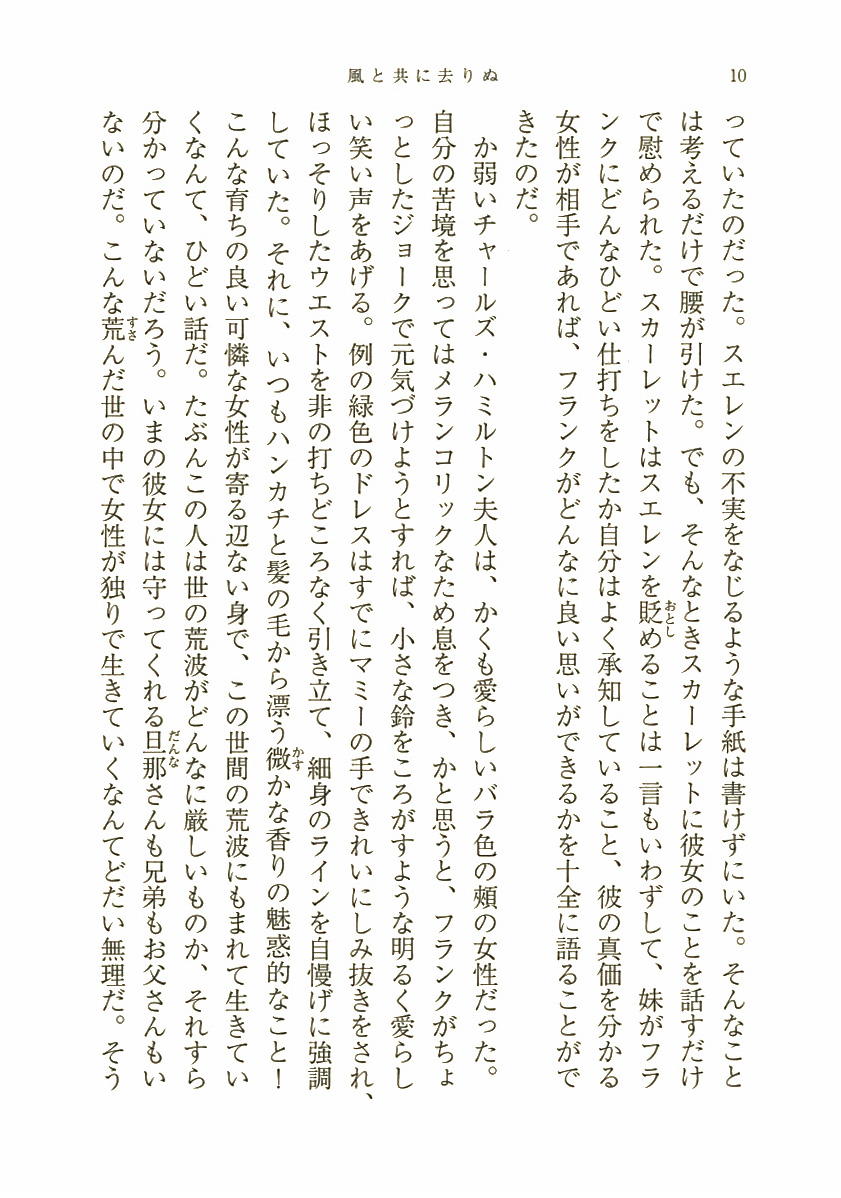 風と共に去りぬ
10
っていたのだった。スエレンの不実をなじるような手紙は書けずにいた。そんなこと
は考えるだけで腰が引けた。でも、そんなときスカーレットに彼女のことを話すだけ
で慰められた。スカーレットはスエレンを貶めることは一言もいわずして、妹がフラ
おとし
ンクにどんなひどい仕打ちをしたか自分はよく承知していること、彼の真価を分かる
女性が相手であれば、フランクがどんなに良い思いができるかを十全に語ることがで
きたのだ。
か弱いチャールズ・ハミルトン夫人は、かくも愛らしいバラ色の頰の女性だった。
自分の苦境を思ってはメランコリックなため息をつき、かと思うと、フランクがちょ
っとしたジョークで元気づけようとすれば、小さな鈴をころがすような明るく愛らし
い笑い声をあげる。例の緑色のドレスはすでにマミーの手できれいにしみ抜きをされ、
ほっそりしたウエストを非の打ちどころなく引き立て、細身のラインを自慢げに強調
していた。それに、いつもハンカチと髪の毛から漂う微かな香りの魅惑的なこと！
かす
こんな育ちの良い可憐な女性が寄る辺ない身で、この世間の荒波にもまれて生きてい
くなんて、ひどい話だ。たぶんこの人は世の荒波がどんなに厳しいものか、それすら
分かっていないだろう。いまの彼女には守ってくれる旦那さんも兄弟もお父さんもい
だんな
ないのだ。こんな荒んだ世の中で女性が独りで生きていくなんてどだい無理だ。そう
すさ